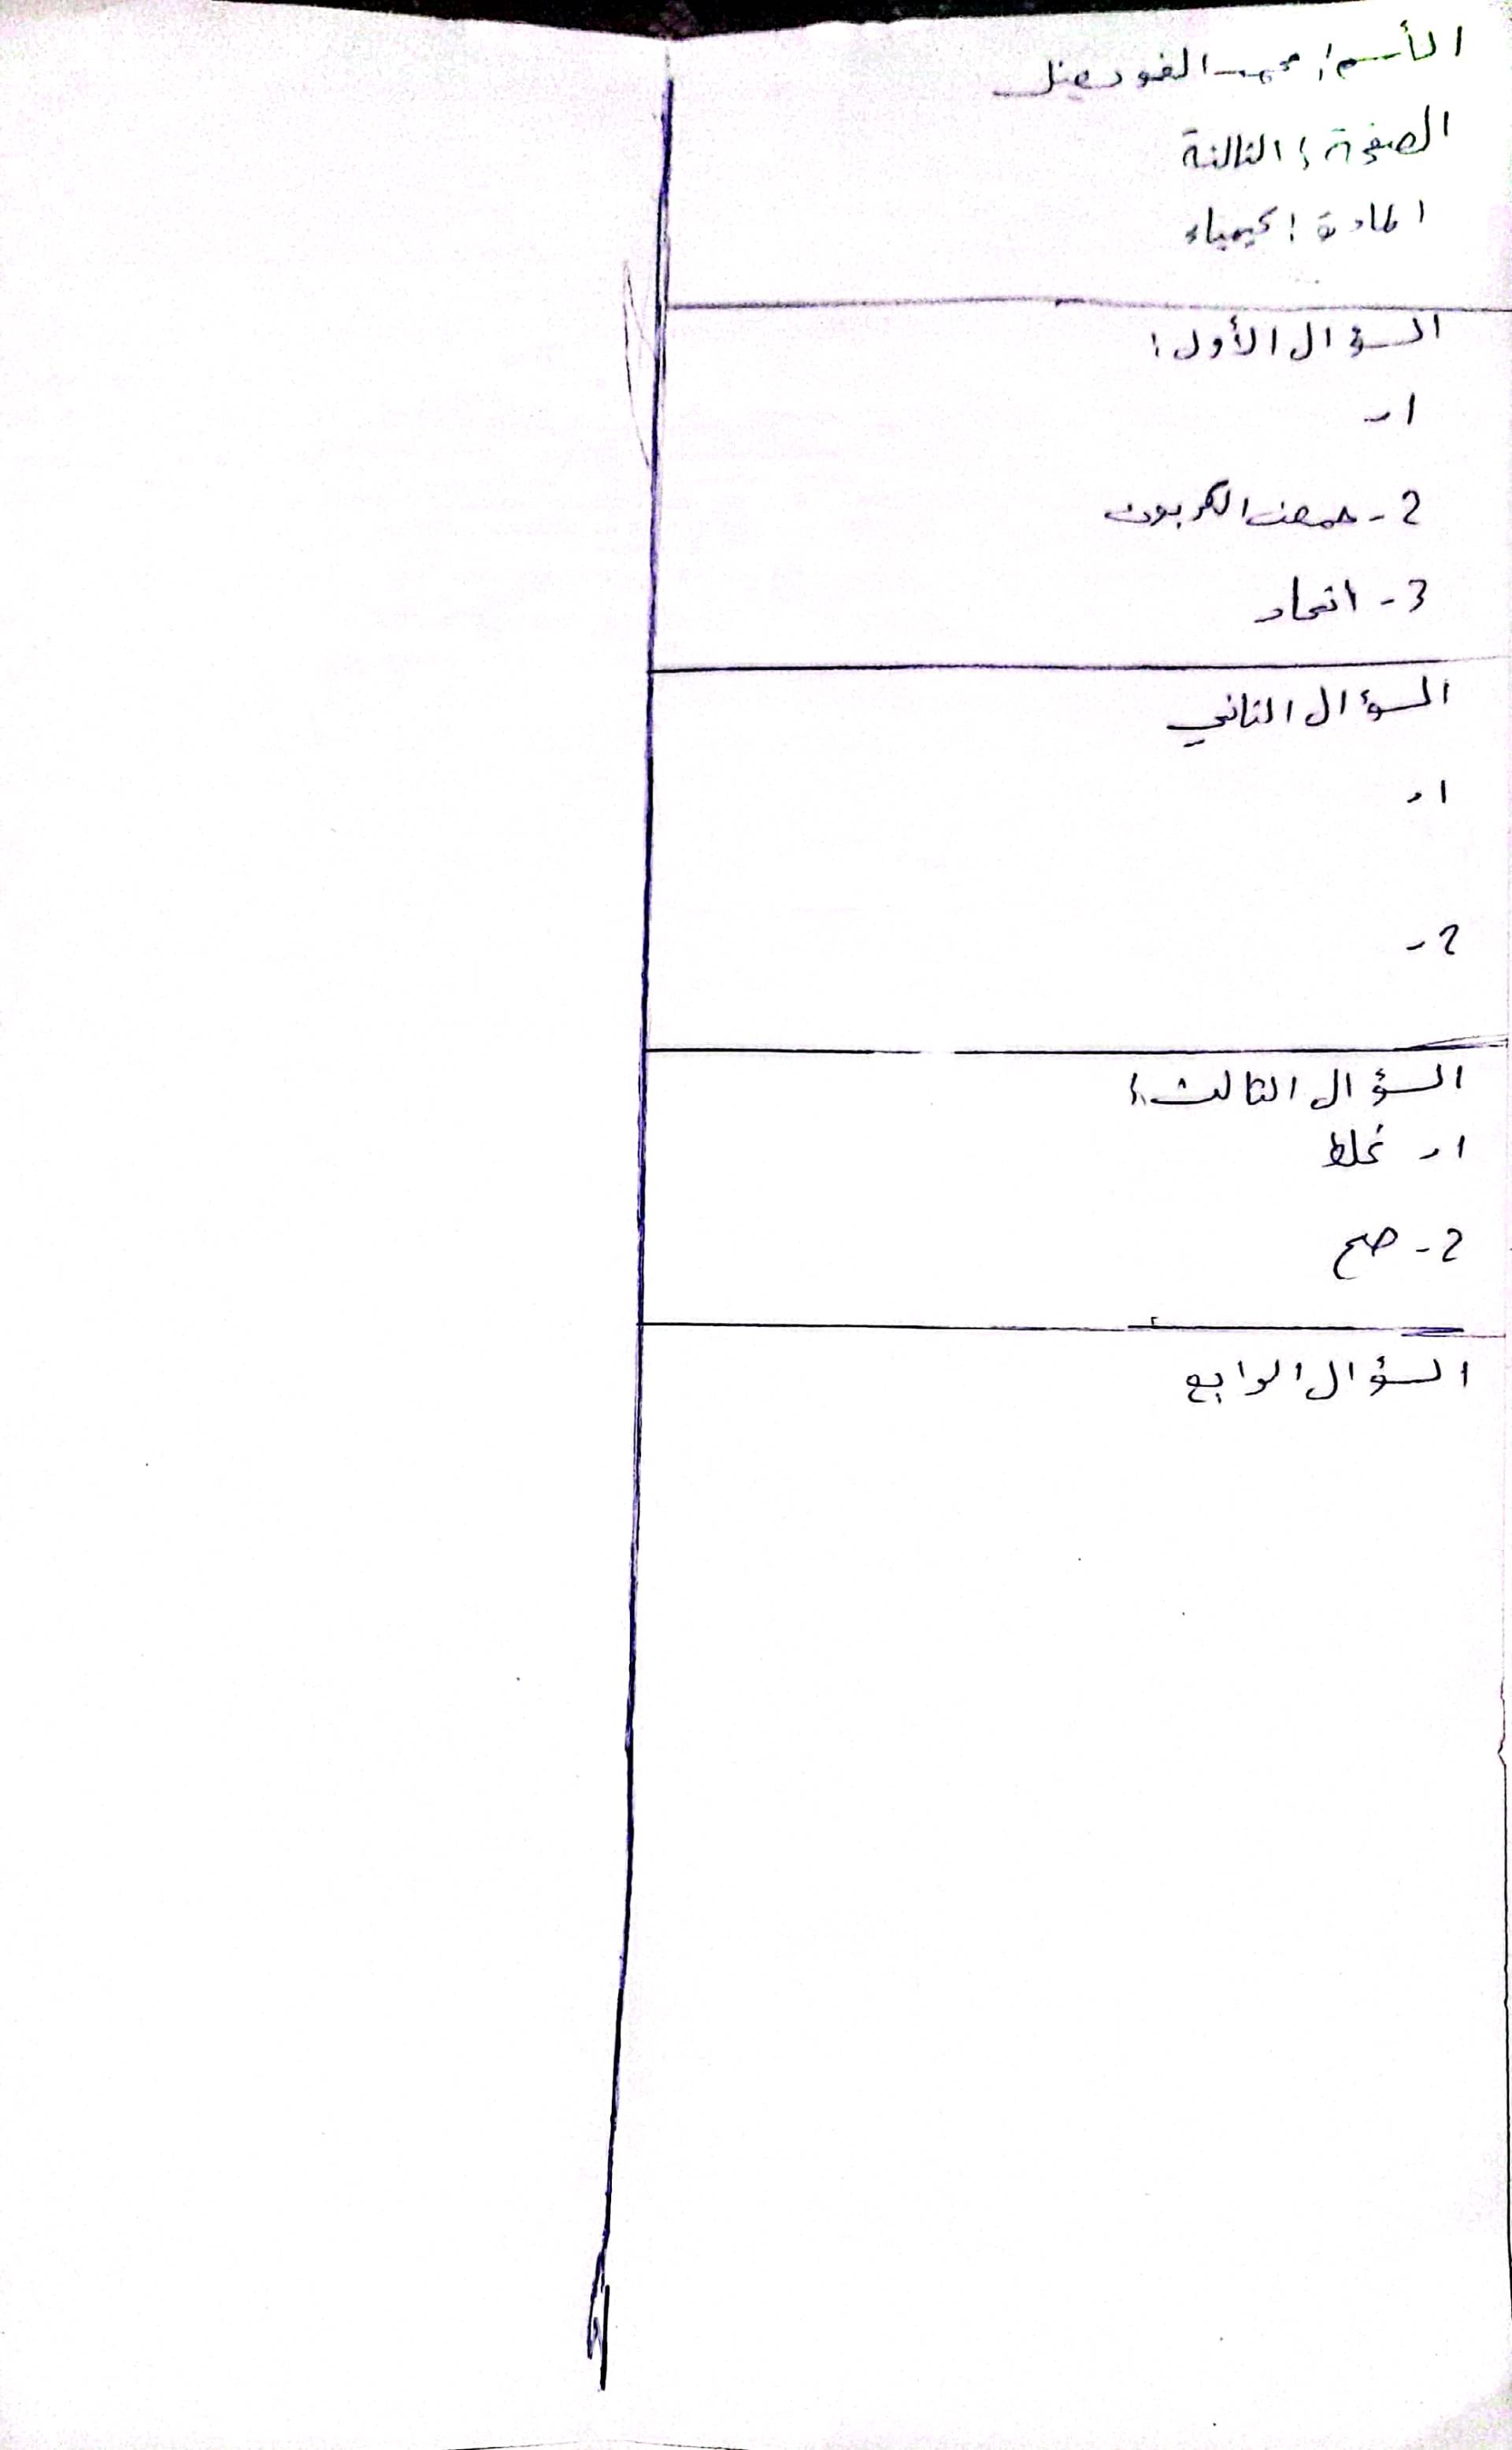 الأسم: محمد الغودهنل
الصفحة: الثالثة
المادة: كيمياء
السؤال الأول:
1-
2- حمض الكربون
3- اتحاد
السؤال الثاني
1-
2-
السؤال الثالث:
1- غلط
2- صح
السؤال الرابع